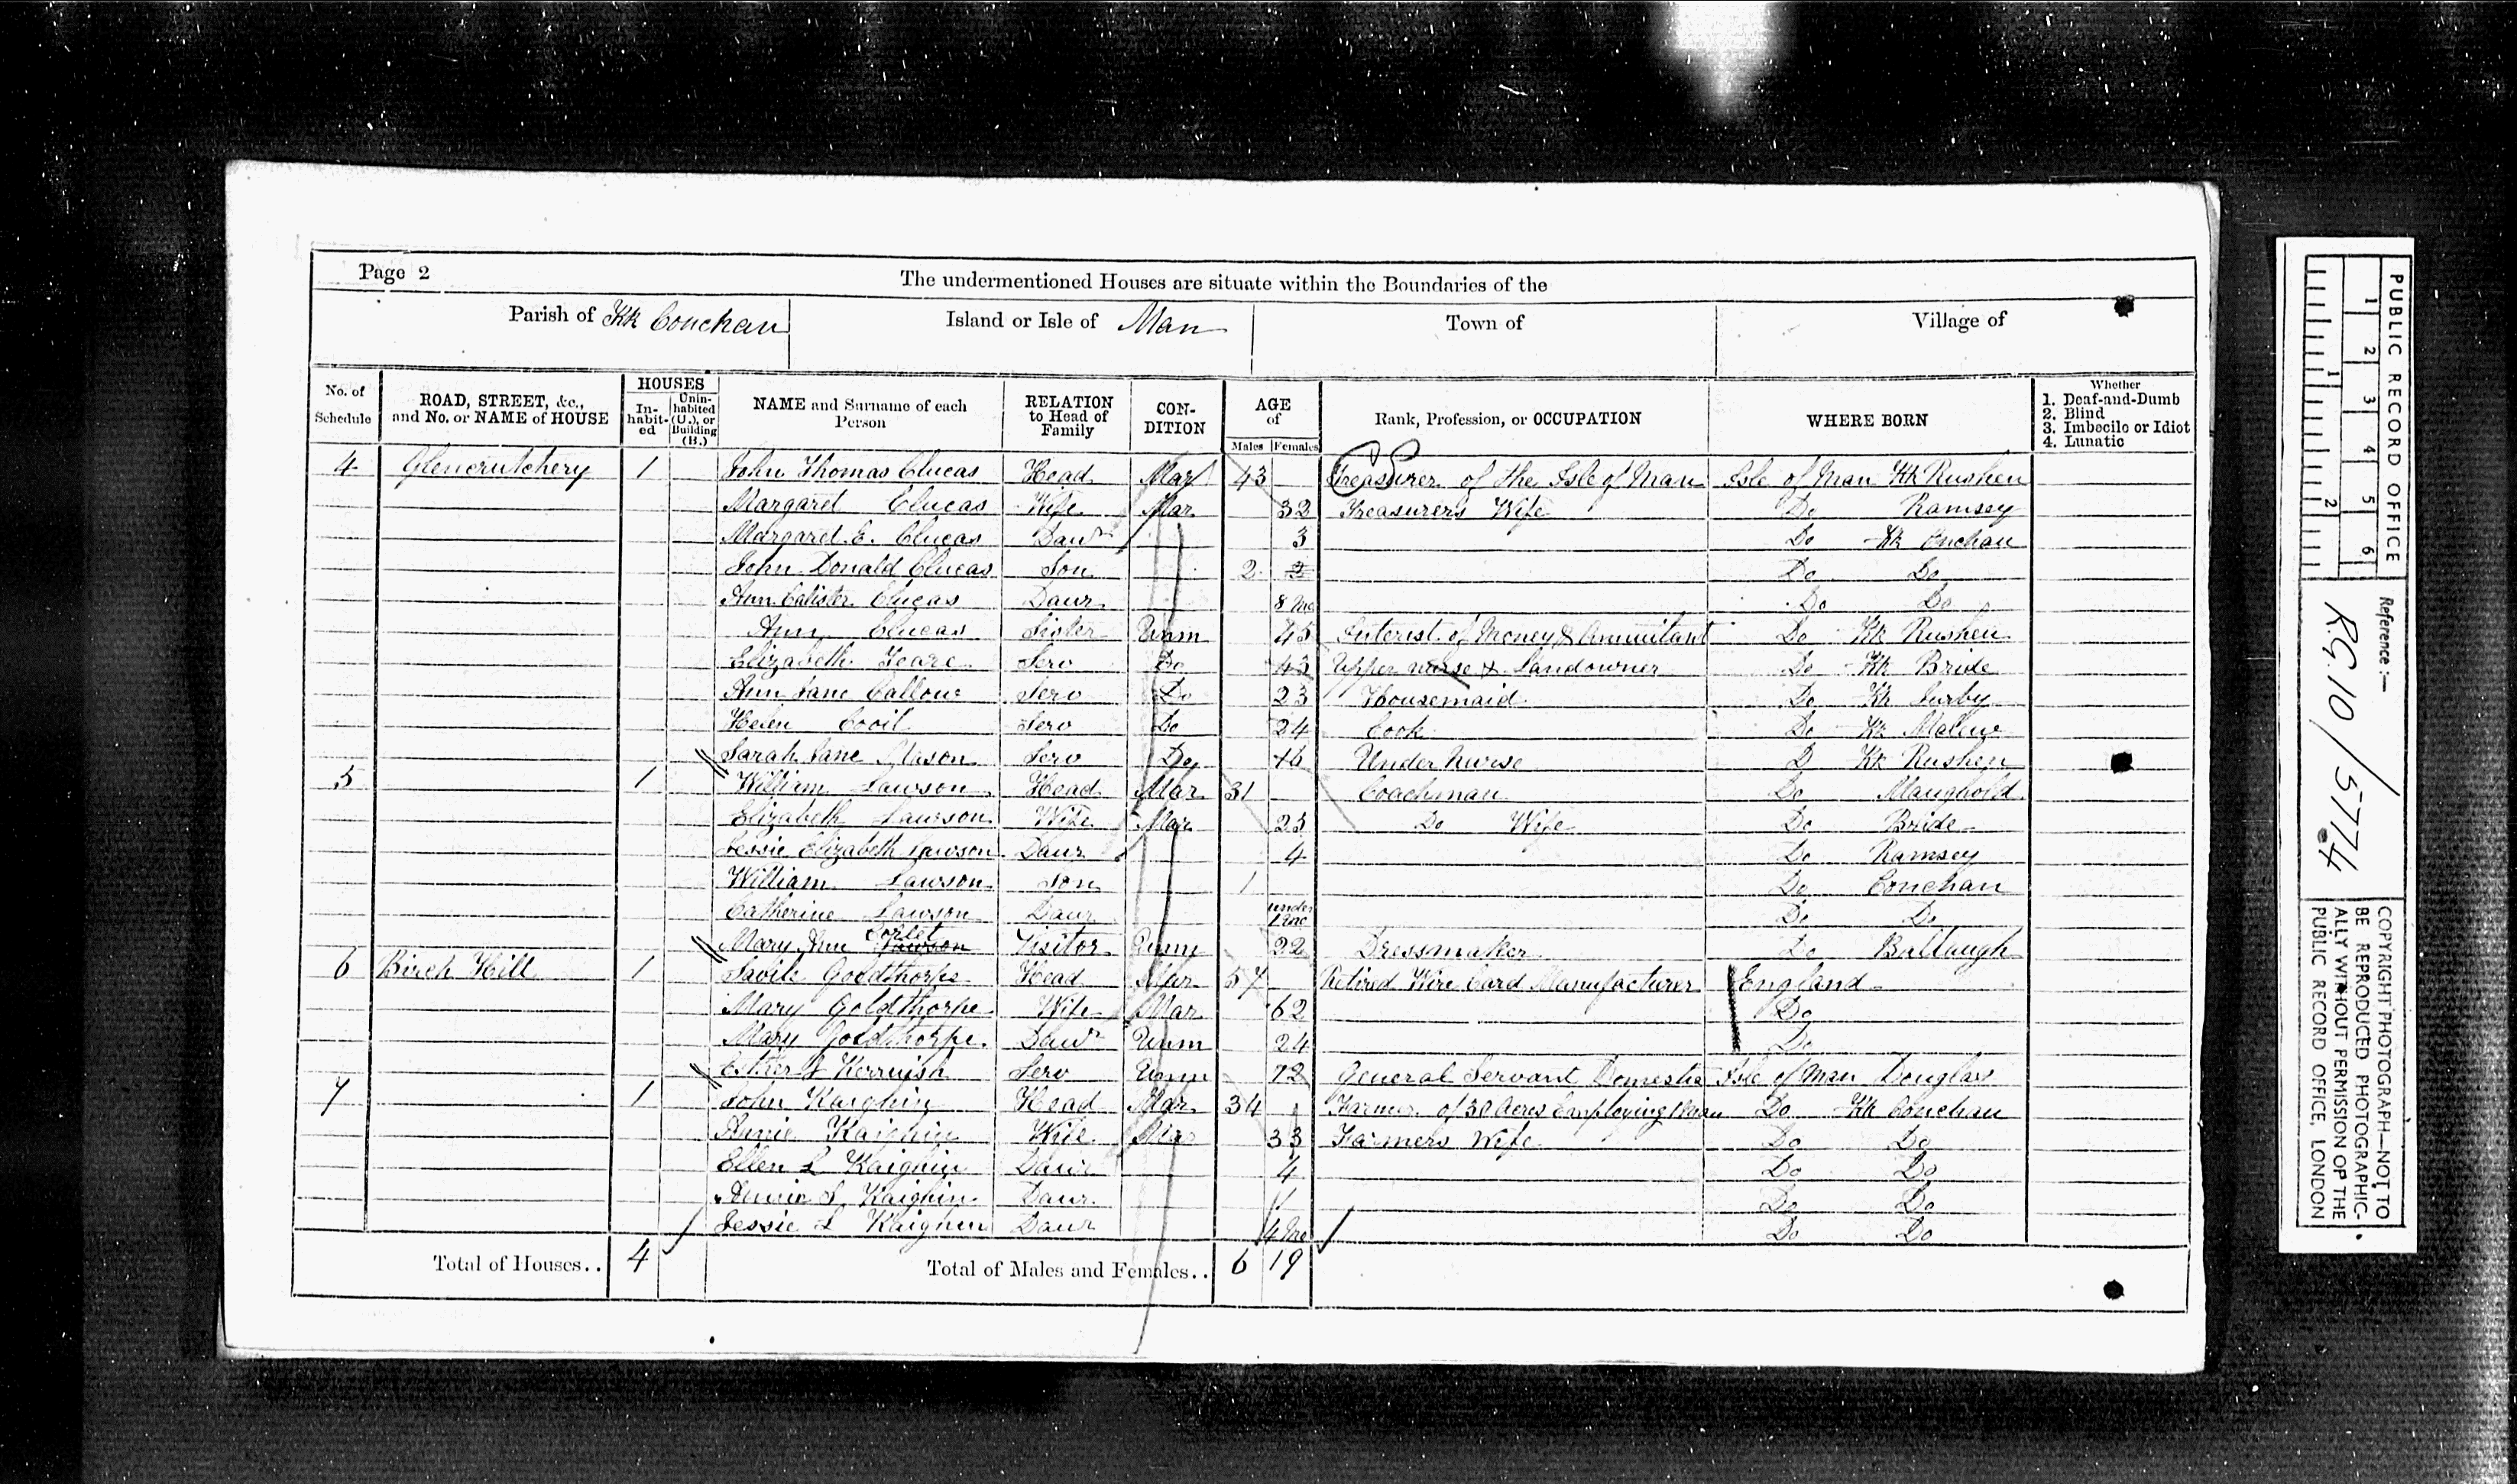 Page 2
The undermentioned Houses are situate within the Boundaries of the
Parish of Kk Conchan Island or Isle of Man Town of Village of
No. of Schedule ROAD, STREET, &c., and No. or NAME of HOUSE HOUSES In-habit-ed Unin-habited (U.), or Building (B.) NAME and Surname of each Person RELATION to Head of Family CON-DITION AGE of Males Females Rank, Profession, or OCCUPATION WHERE BORN Whether 1. Deaf-and-Dumb 2. Blind 3. Imbecile or Idiot 4. Lunatic
4 Glencrutchery 1 John Thomas Clucas Head Mar 43 Treasurer of the Isle of Man Isle of Man Kk Rushen
Margaret Clucas Wife Mar 32 Treasurers Wife Do Ramsey
Margaret E. Clucas Daur 3 Do Kk Onchan
John Donald Clucas Son 2 2 Do Do
Ann Calister Clucas Daur 8 Mo Do Do
Ann Clucas Sister Unm 45 Interest of Money & Annuitant Do Kk Rushen
Elizabeth Teare Serv Do 43 Upper nurse & Landowner Do Kk Bride
Ann Jane Callow Serv Do 23 Housemaid Do Kk
Helen Cooil Serv Do 24 Cook Do Kk Malew
Sarah Jane Serv Do 16 Under Nurse D Kk Rushen
5 1 William Lawson Head Mar 31 Coachman Do Maughold
Elizabeth Lawson Wife Mar Do Wife Do Bride
Jessie Elizabeth Lawson Daur 4 Do Ramsey
William Lawson Son 1 Do Conchan
Catherine Lawson Daur under 1 mo Do Do
Mary Ann Lawson Visitor Unm 22 Dressmaker Do Ballaugh
6 Birch Hill 1 Savile Goldthorpe Head Mar 57 Retired Wire Card Manufacturer England
Mary Goldthorpe Wife Mar 62 Do
Mary Goldthorpe Daur Unm 24 Do
Esther J Kerruish Serv Unm General Servant Domestic Isle of Man Douglas
7 1 John Kaighin Head Mar 34 Farmer of 30 Acres Employing Do Kk Conchan
Annie Kaighin Wife Mar 33 Farmers Wife Do Do
Ellen L Kaighin Daur 4 Do Do
Annie Kaighin Daur 1 Do Do
Jessie L Kaighin Daur 4 Mo Do Do
Total of Houses.. 4 Total of Males and Females.. 6 19
PUBLIC RECORD OFFICE
1 2 3 4 5 6
1 2
Reference:-
RG 10 / 5774
COPYRIGHT PHOTOGRAPH—NOT TO
BE REPRODUCED PHOTOGRAPHIC-
ALLY WITHOUT PERMISSION OF THE
PUBLIC RECORD OFFICE, LONDON